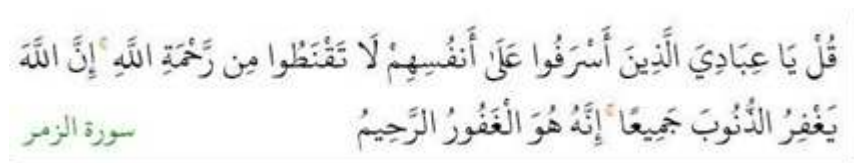 قُلْ يَا عِبَادِيَ الَّذِينَ أَسْرَفُوا عَلَىٰ أَنفُسِهِمْ لَا تَقْنَطُوا مِن رَّحْمَةِ اللَّهِ ۚ إِنَّ اللَّهَ
يَغْفِرُ الذُّنُوبَ جَمِيعًا ۚ إِنَّهُ هُوَ الْغَفُورُ الرَّحِيمُ سورة الزمر